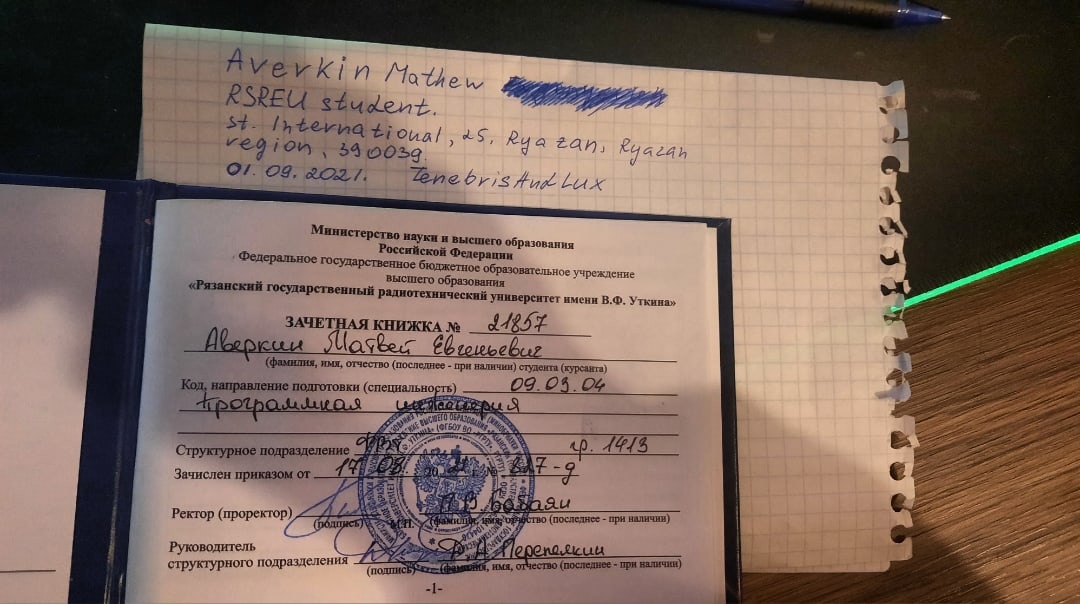 Averkin Mathew
RSREU student.
st. International, 25, Ryazan, Ryazan
region, 390039.
01.09.2021. TenebrisAndLux
Министерство науки и высшего образования
Российской Федерации
Федеральное государственное бюджетное образовательное учреждение
высшего образования
«Рязанский государственный радиотехнический университет имени В.Ф. Уткина»
ЗАЧЕТНАЯ КНИЖКА № 21857
Аверкин Матвей Евгеньевич
(фамилия, имя, отчество (последнее - при наличии) студента (курсанта)
Код, направление подготовки (специальность) 09.03.04
Программная инженерия
Структурное подразделение ФВТ гр. 1413
Зачислен приказом от 17.08. 20 21 г. № -д
Ректор (проректор)
(подпись) М.П. (фамилия, имя, отчество (последнее - при наличии)
Руководитель
структурного подразделения Перепелкин
(подпись) (фамилия, имя, отчество (последнее - при наличии)
-1-